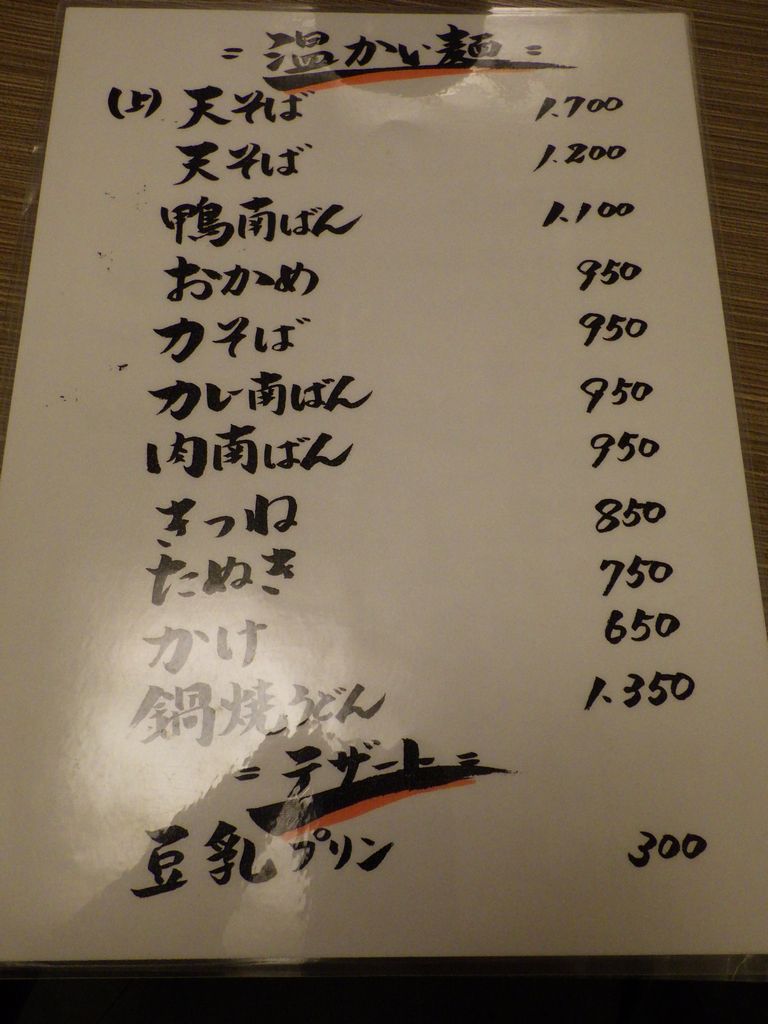 = 温かい麺 =
(上) 天そば 1.700
天そば 1.200
鴨南ばん 1.100
おかめ 950
力そば 950
カレー南ばん 950
肉南ばん 950
きつね 850
たぬき 750
かけ 650
鍋焼うどん 1.350
= デザート =
豆乳プリン 300